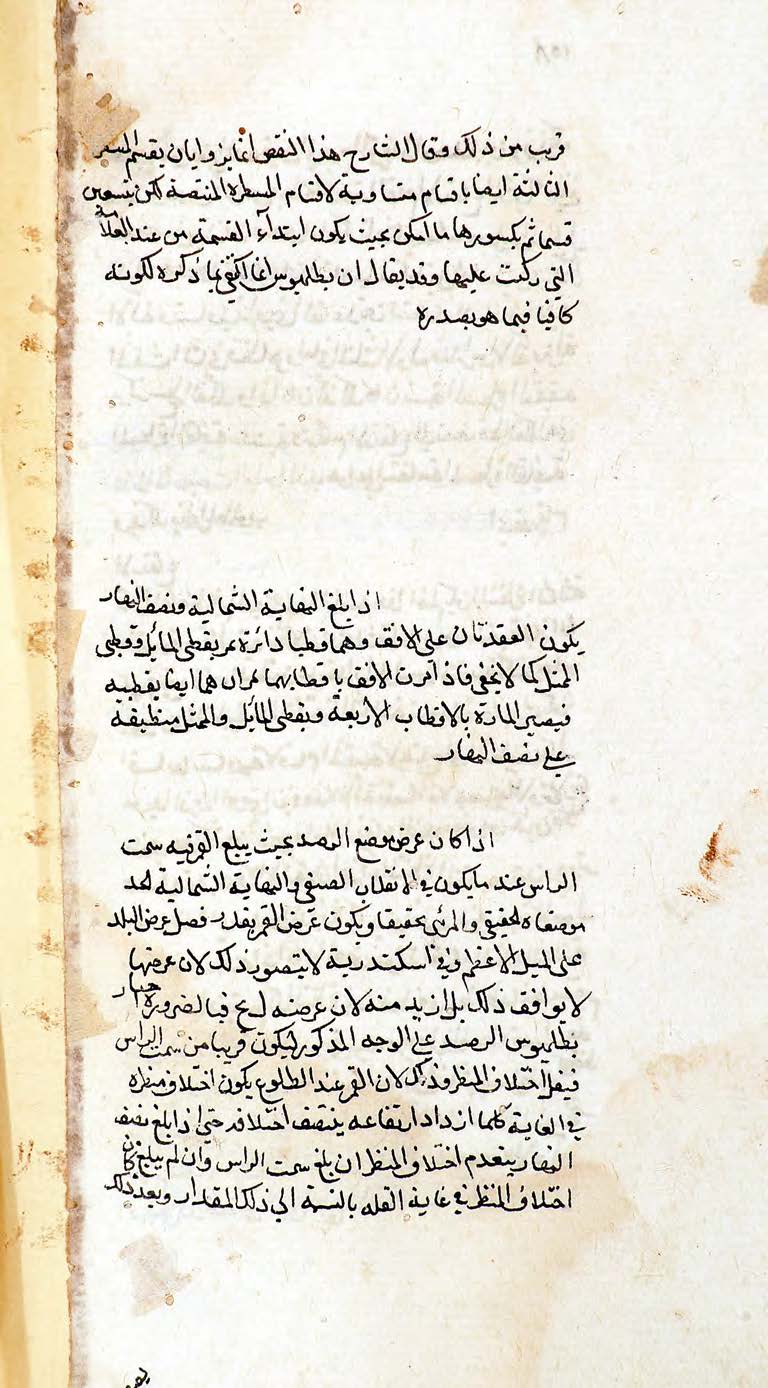 قريب من ذلك وقال الشارح هذا النقص انما يزو ايان يقسم المسطر
الثالثة ايضا باقسام متساوية لاقسام المسطرة المنتصة لكن بتسعين
قسما ثم بكسورها ما امكن بحيث يكون ابتداء القسمة من عند العلامة
التي ركبت عليها وقد يقال ان بطلميوس انما اكتفى بما ذكره لكونه
كافيا فيما هو بصدره
اذا بلغ النهاية الشمالية ونصف النهار
يكون العقدتان على الافق وهما قطبا دائرة تمر بقطبى المائل وقطبى
الممثل كما لا يخفى فاذا مرت الافق باقطابهما يمران هما ايضا بقطبيه
فيصير المارة بالاقطاب الاربعة وبقطبى المائل والممثل منطبقة
على نصف النهار
اذا كان عرض موضع الرصد بحيث يبلغ القمر فيه سمت
الراس عند ما يكون في الانقلاب الصيفى والنهاية الشمالية اتحد
موضعاه الحقيقى والمرئى تحقيقا ويكون عرض القمر بقدر فضل عرض البلد
على الميل الاعظم وفي اسكندرية لا يتصور ذلك لان عرضها
لا يوافق ذلك بل ازيد منه لان عرضه ل يح فبالضرورة اختار
بطلميوس الرصد على الوجه المذكور ليكون قريبا من سمت الراس
فيقل اختلاف المنظر وذلك لان القمر عند الطلوع يكون اختلاف منظره
في الغاية كلما ازداد ارتفاعه ينتقص اختلافه حتى اذا بلغ نصف
النهار ينعدم اختلاف المنظر ان بلغ سمت الراس وان لم يبلغ كان
اختلاف المنظر في غاية القلة بالنسبة الى ذلك المقدار وبعد ذلك